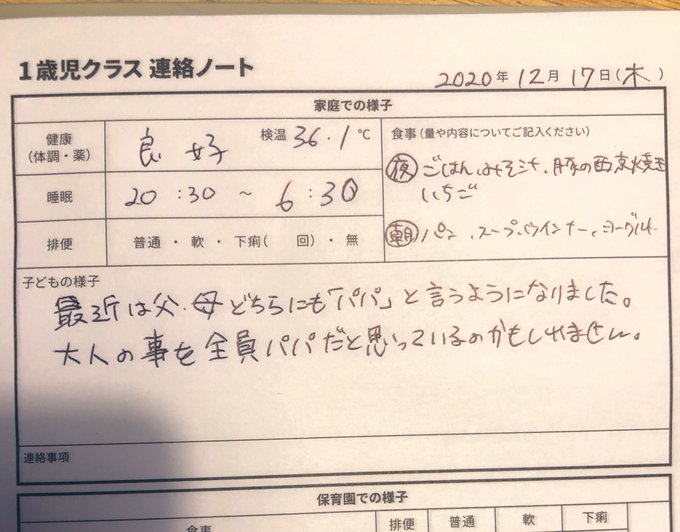 1歳児クラス 連絡ノート
2020年12月17日(木)
家庭での様子
健康(体調・薬) 良好 検温 36.1℃
食事(量や内容についてご記入ください)
夜 ごはん、みそ汁、豚の西京焼き
いちご
睡眠 20:30 ~ 6:30
朝 パン、スープ、ウインナー、ヨーグルト
排便 普通・軟・下痢( 回)・無
子どもの様子
最近は父、母どちらにも「パパ」と言うようになりました。
大人の事を全員パパだと思っているのかもしれません。
連絡事項
保育園での様子
食事 排便 普通 軟 下痢